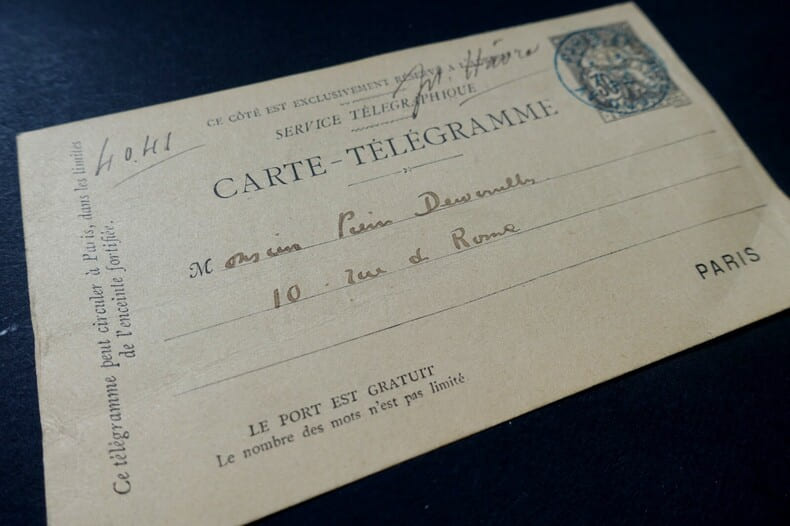 CE CÔTÉ EST EXCLUSIVEMENT RÉSERVÉ A
SERVICE TÉLÉGRAPHIQUE
CARTE-TÉLÉGRAMME
4041
30
Monsieur Pierre
10 rue de Rome
PARIS
LE PORT EST GRATUIT
Le nombre des mots n'est pas limité
Ce télégramme peut circuler à Paris, dans les limites
de l'enceinte fortifiée.